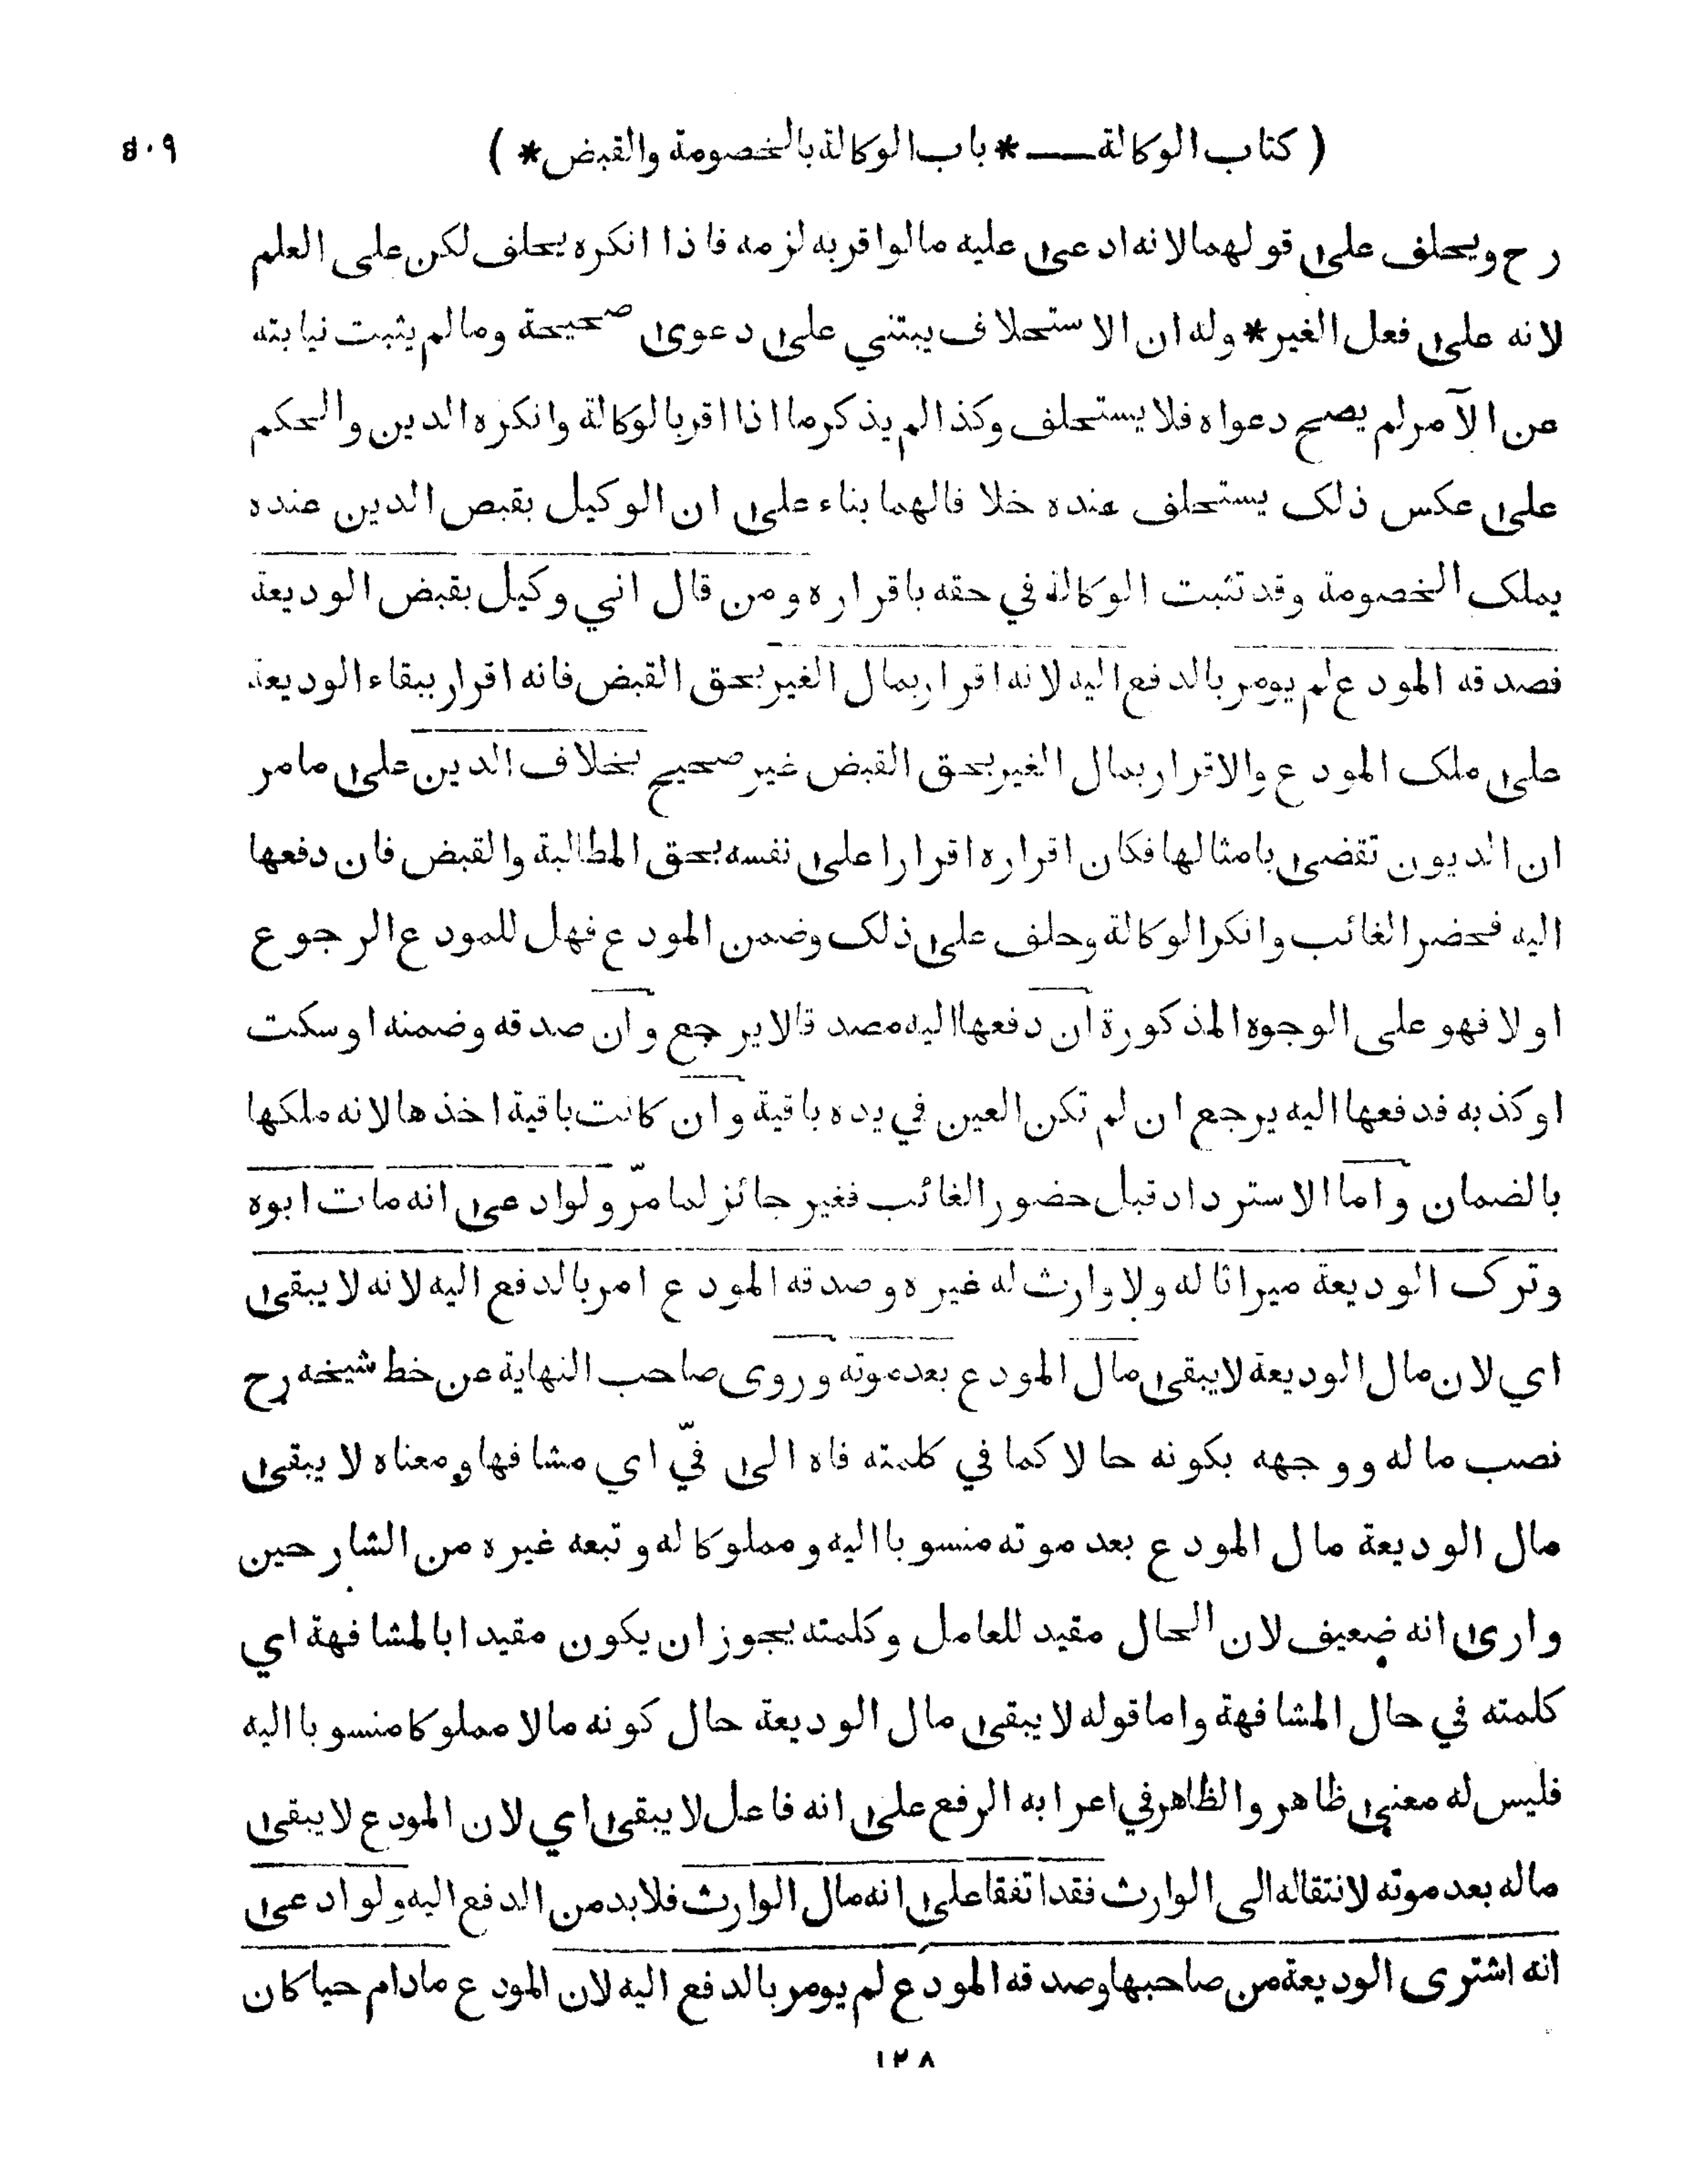 ( كتاب الوكالة ــــ * باب الوكالة بالخصومة والقبض * )
٥٠٩
رح ويحلف على قولهما لانه ادعى عليه ما لو اقر به لزمه فاذا انكره يحلف لكن على العلم
لانه على فعل الغير * وله ان الاستحلاف يبتني على دعوى صحيحة وما لم يثبت نيابته
عن الآمر لم يصح دعواه فلا يستحلف وكذا لم يذكر ما اذا اقر بالوكالة وانكره الدين والحكم
على عكس ذلك يستحلف عنده خلا فالهما بناء على ان الوكيل بقبص الدين عنده
يملك الخصومة وقد تثبت الوكالة في حقه باقراره ومن قال اني وكيل بقبض الوديعة
فصدقه المودع لم يومر بالدفع اليه لانه اقرار بمال الغير بحق القبض فانه اقرار ببقاء الوديعة
على ملك المودع والاقرار بمال الغير بحق القبض غير صحيح بخلاف الدين على ما مر
ان الديون تقضى بامثالها فكان اقراره اقرارا على نفسه بحق المطالبة والقبض فان دفعها
اليه فحضر الغائب وانكر الوكالة وحلف على ذلك وضمن المودع فهل للمودع الرجوع
او لا فهو على الوجوه المذكورة ان دفعها اليه مصدقا لا يرجع وان صدقه وضمنه او سكت
او كذبه فدفعها اليه يرجع ان لم تكن العين في يده باقية وان كانت باقية اخذها لانه ملكها
بالضمان واما الاسترداد قبل حضور الغائب فغير جائز لما مرّ ولو ادعى انه مات ابوه
وترك الوديعة ميراثا له ولا وارث له غيره وصدقه المودع امر بالدفع اليه لانه لا يبقى
اي لان مال الوديعة لا يبقى مال المودع بعد موته وروى صاحب النهاية عن خط شيخه رح
نصب ماله ووجهه بكونه حالا كما في كلمته فاه الى فيّ اي مشافها ومعناه لا يبقى
مال الوديعة مال المودع بعد موته منسوبا اليه ومملوكا له وتبعه غيره من الشارحين
وارى انه ضعيف لان الحال مقيد للعامل وكلمته يجوز ان يكون مقيدا بالمشافهة اي
كلمته في حال المشافهة واما قوله لا يبقى مال الوديعة حال كونه مالا مملوكا منسوبا اليه
فليس له معنى ظاهر والظاهر في اعرابه الرفع على انه فاعل لا يبقى اي لان المودع لا يبقى
ماله بعد موته لانتقاله الى الوارث فقد اتفقا على انه مال الوارث فلا بد من الدفع اليه ولو ادعى
انه اشترى الوديعة من صاحبها وصدقه المودع لم يومر بالدفع اليه لان المودع مادام حيا كان
١٢٨